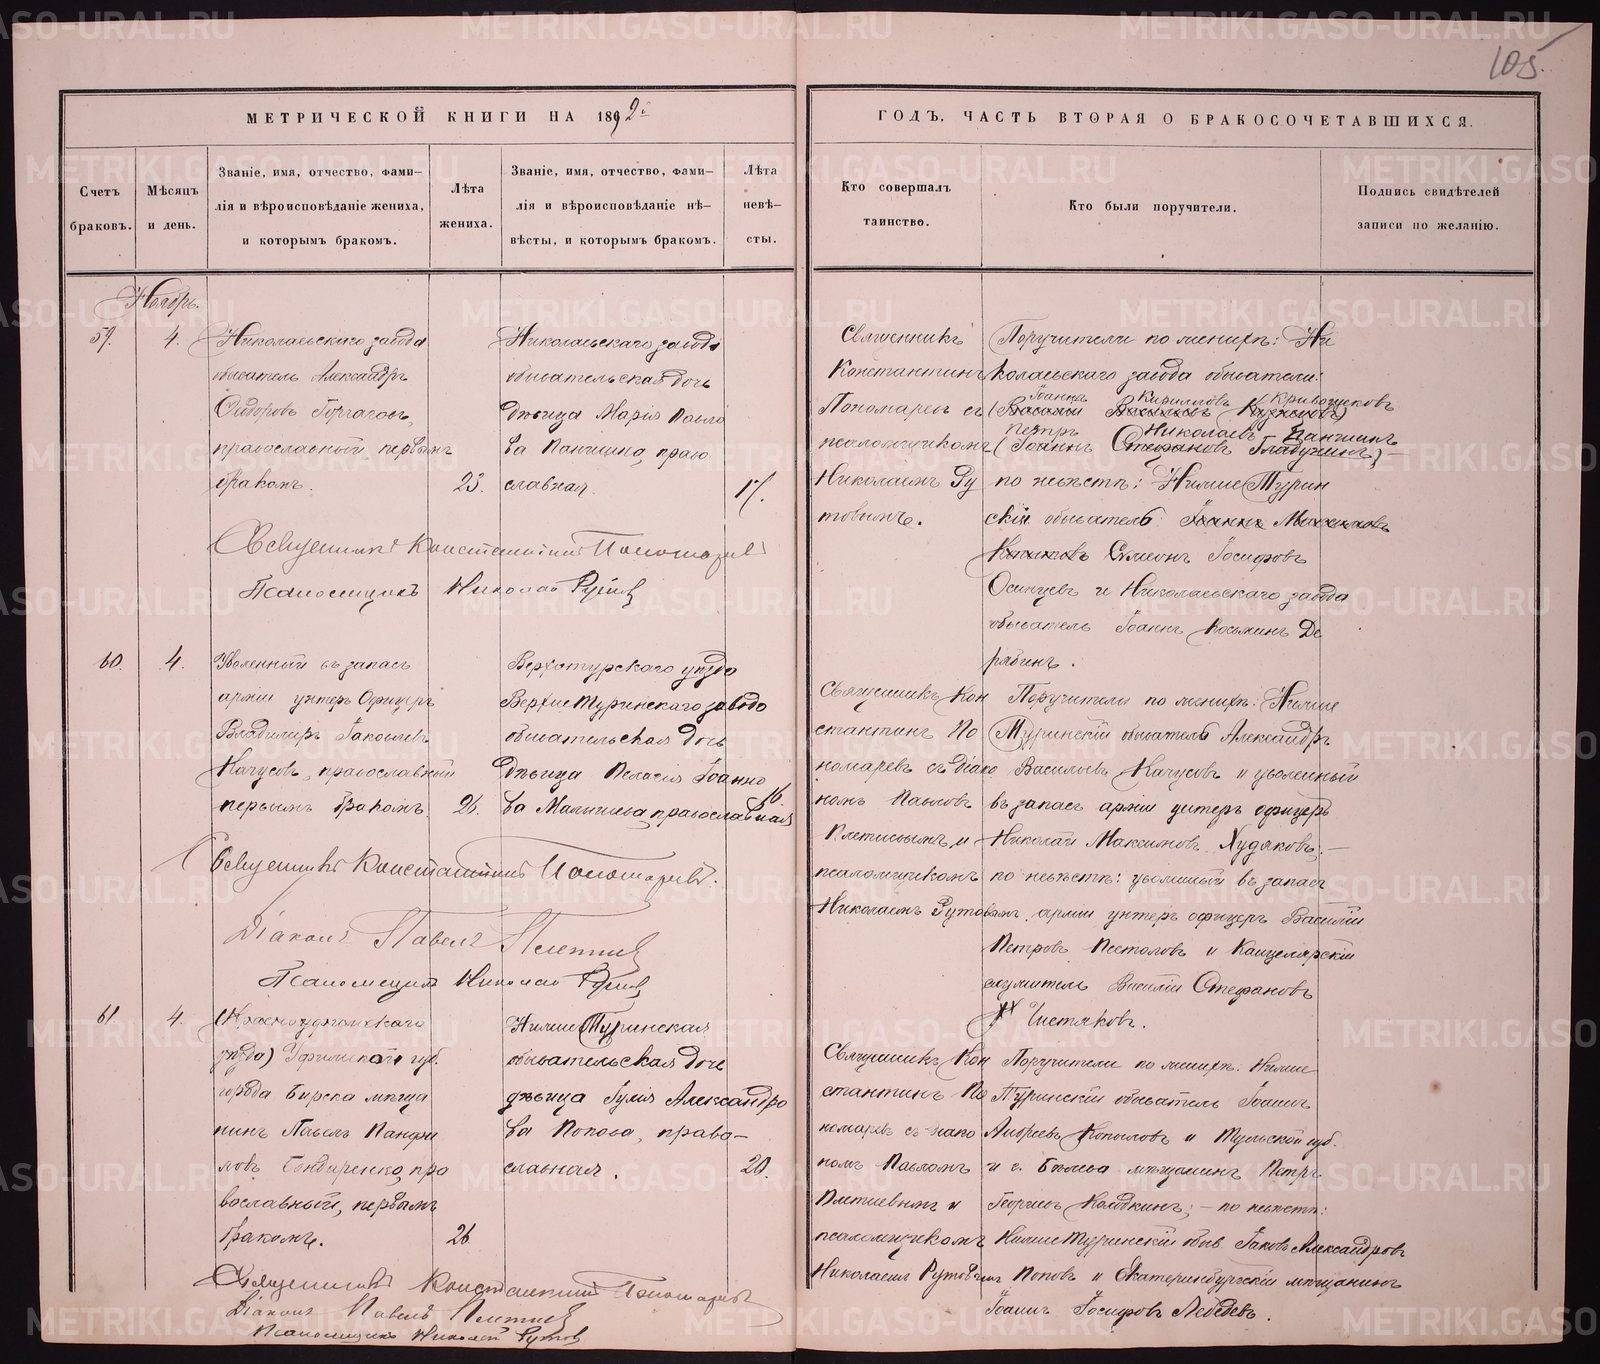 105.
МЕТРИЧЕСКОЙ КНИГИ НА 1892й
ГОДЪ, ЧАСТЬ ВТОРАЯ О БРАКОСОЧЕТАВШИХСЯ.
Счетъ
браковъ.
Мѣсяцъ
и день.
Званіе, имя, отчество, фами–
лія и вѣроисповѣданіе жениха,
и которымъ бракомъ.
Лѣта
жениха.
Званіе, имя, отчество, фами–
лія и вѣроисповѣданіе нѣ–
вѣсты, и которымъ бракомъ.
Лѣта
невѣ–
сты.
Кто совершалъ
таинство.
Кто были поручители.
Подпись свидѣтелей
записи по желанію.
Ноябрь.
59.
4.
Николаевскаго завода
обыватель Александръ
Сидоровъ
православный первымъ
бракомъ.
23.
Николаевскаго завода
обывательская дочь
дѣвица Марія Павло
ва Паншина, право
славная.
17.
Священникъ
Константинъ
Пономаревъ съ
псаломщикомъ
Николаемъ Ру
товымъ.
Поручители по женихѣ: Ни
колаевскаго завода обыватели:
Іоаннъ Кирилловъ Кривощековъ
(Василій Васильевъ Кузнецовъ)
Петръ Николаевъ Паншинъ
(Іоаннъ Стефановъ) –
по невѣстѣ: Нижне Турин
скій обыватель Іоаннъ
Симеонъ Іосифовъ
Осинцевъ и Николаевскаго завода
обыватель Іоаннъ Косьминъ Де
рябинъ.
Священникъ Константинъ Пономаревъ
Псаломщикъ Николай Рутовъ
60.
4.
Уволенный въ запасъ
арміи унтеръ офицеръ
Владимиръ Іаковлевъ
Качусовъ, православный
первымъ бракомъ.
26.
Верхотурскаго уѣзда
Верхне Туринскаго завода
обывательская дочь
дѣвица Пелагія Іоанно
ва Мальгина православная
16
Священникъ Кон
стантинъ По
номаревъ съ діако
номъ Павломъ
Плетневымъ и
псаломщикомъ
Николаемъ Рутовымъ.
Поручители по женихѣ: Нижне
Туринскій обыватель Александръ
Васильевъ Качусовъ и уволенный
въ запасъ арміи унтеръ офицеръ
Николай Максимовъ Худяковъ; –
по невѣстѣ: уволенный въ запасъ
арміи унтеръ офицеръ Василій
Петровъ Пестовъ и Канцелярскій
служитель Василій Стефановъ
Чистяковъ.
Священникъ Константинъ Пономаревъ.
Діаконъ Павелъ Плетневъ
Псаломщикъ Николай Рутовъ
61
4.
(Красноуфимскаго
уѣзда) Уфимской губ.
города Бирска мѣща
нинъ Павелъ Панфи
ловъ Бондаренко, пра
вославный, первымъ
бракомъ.
26
Нижне Туринская
обывательская дочь
дѣвица Іулія Александро
ва Попова, право–
славная.
20.
Священникъ Кон
стантинъ По
номаревъ съ діако
номъ Павломъ
Плетневымъ и
псаломщикомъ
Николаемъ Рутовымъ
Поручители по женихѣ. Нижне
Туринскій обыватель Іоаннъ
Андреевъ Копыловъ и Тульской губ.
и г. Бѣлева мѣщанинъ Петръ
Георгіевъ Колодкинъ; – по невѣстѣ:
Нижне Туринскій обыв. Іаковъ Александровъ
Поповъ и Екатеринбургскій мѣщанинъ
Іоаннъ Іосифовъ Лебедевъ.
Священникъ Константинъ Пономаревъ
Діаконъ Павелъ Плетневъ
Псаломщикъ Николай Рутовъ
METRIKI.GASO-URAL.RU